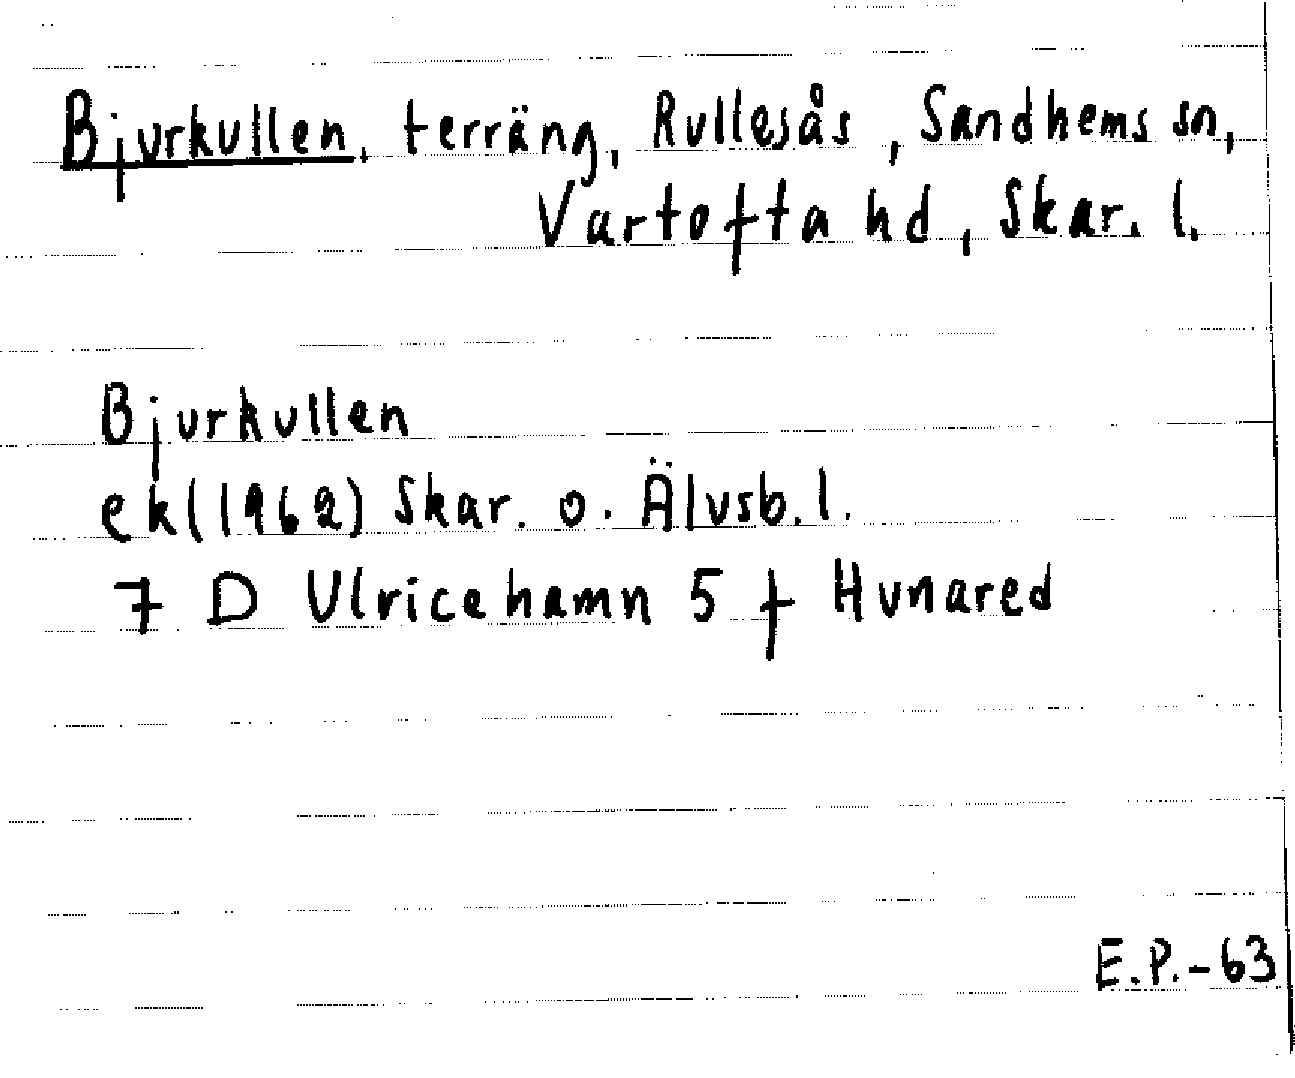 Bjurkullen, terräng, Rullesås, Sandhems sn,
Vartofta hd, Skar. l.
Bjurkullen
ek(1962) Skar. o. Älvsb. l.
7 D Ulricehamn 5 f Hunared
E.P.-63